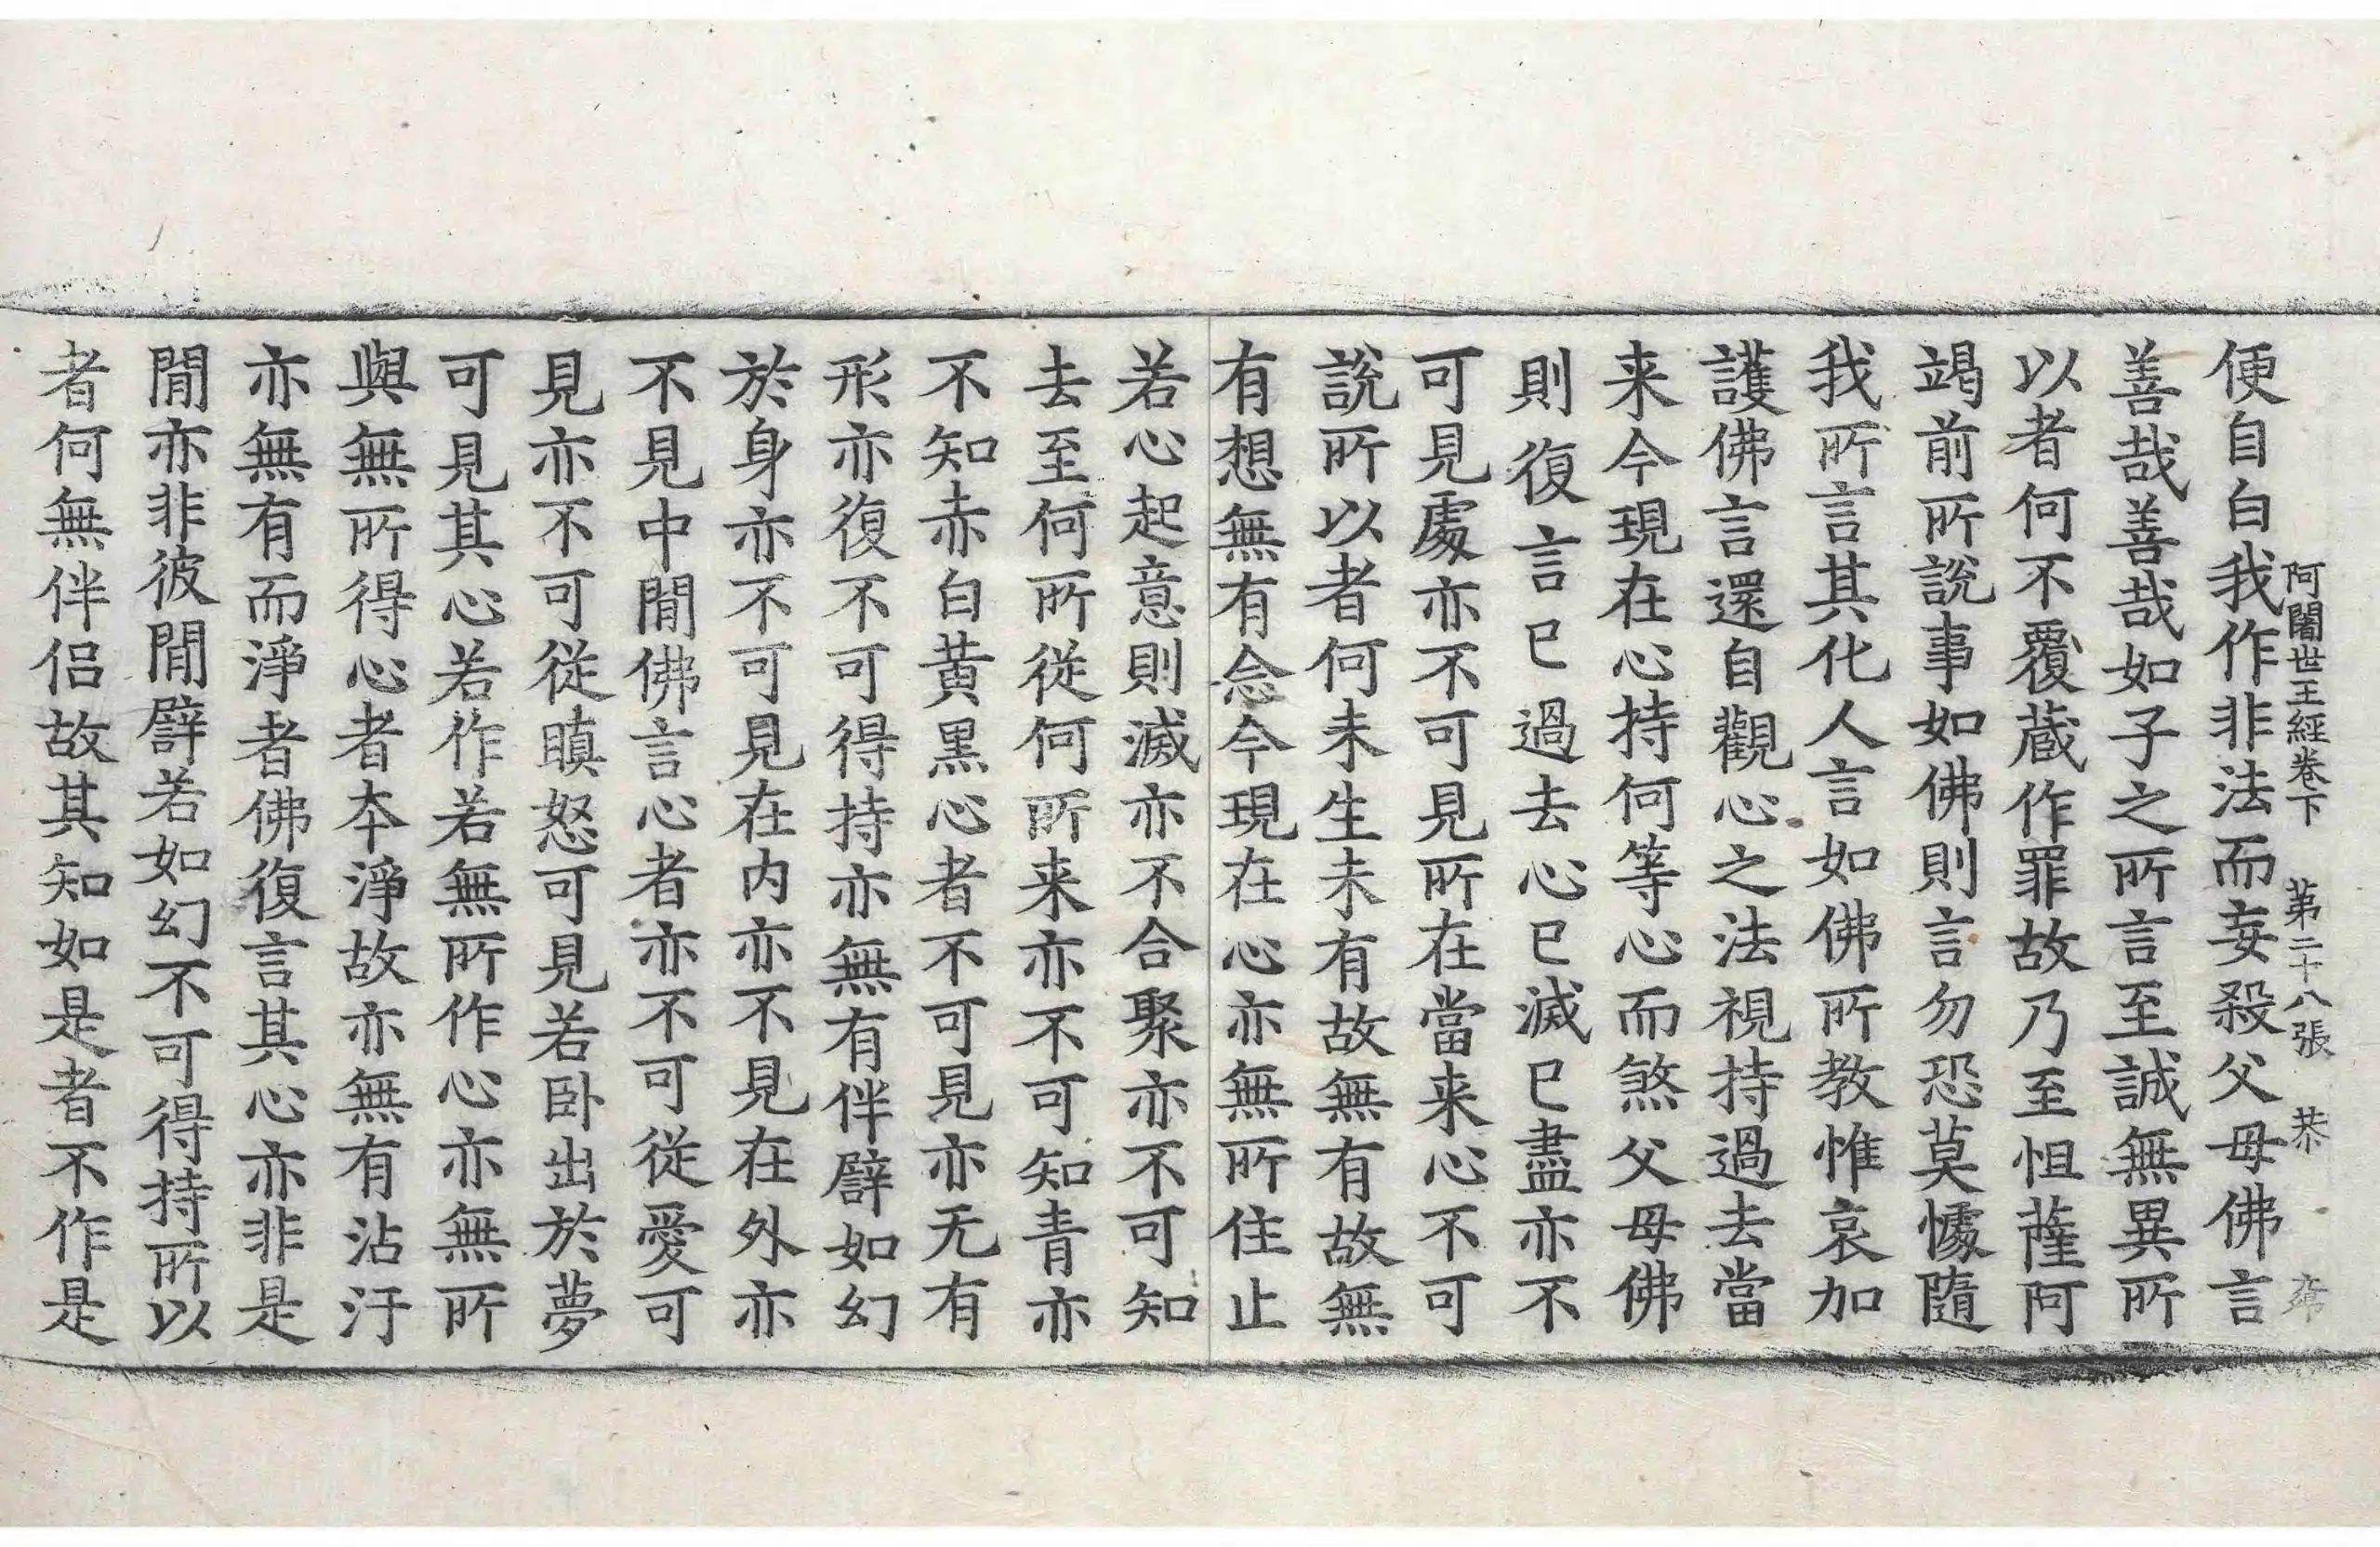 阿闍世王經卷下 第二十八張 恭
便自白我作非法而妄殺父母佛言
善哉善哉如子之所言至誠無異所
以者何不覆蔵作罪故乃至怛薩阿
竭前所說事如佛則言勿恐莫懅隨
我所言其化人言如佛所教惟哀加
護佛言還自觀心之法視持過去當
来今現在心持何等心而煞父母佛
則復言已過去心已滅已盡亦不
可見處亦不可見所在當来心不可
說所以者何未生未有故無有故無
有想無有念今現在心亦無所住止
若心起意則滅亦不合聚亦不可知
去至何所從何所来亦不可知青亦
不知赤白黄黒心者不可見亦无有
形亦復不可得持亦無有伴譬如幻
於身亦不可見在内亦不見在外亦
不見中間佛言心者亦不可從愛可
見亦不可從瞋怒可見若卧出於夢
可見其心若作若無所作心亦無所
與無所得心者本淨故亦無有沾汙
亦無有而淨者佛復言其心亦非是
間亦非彼間譬若如幻不可得持所以
者何無伴侣故其知如是者不作是